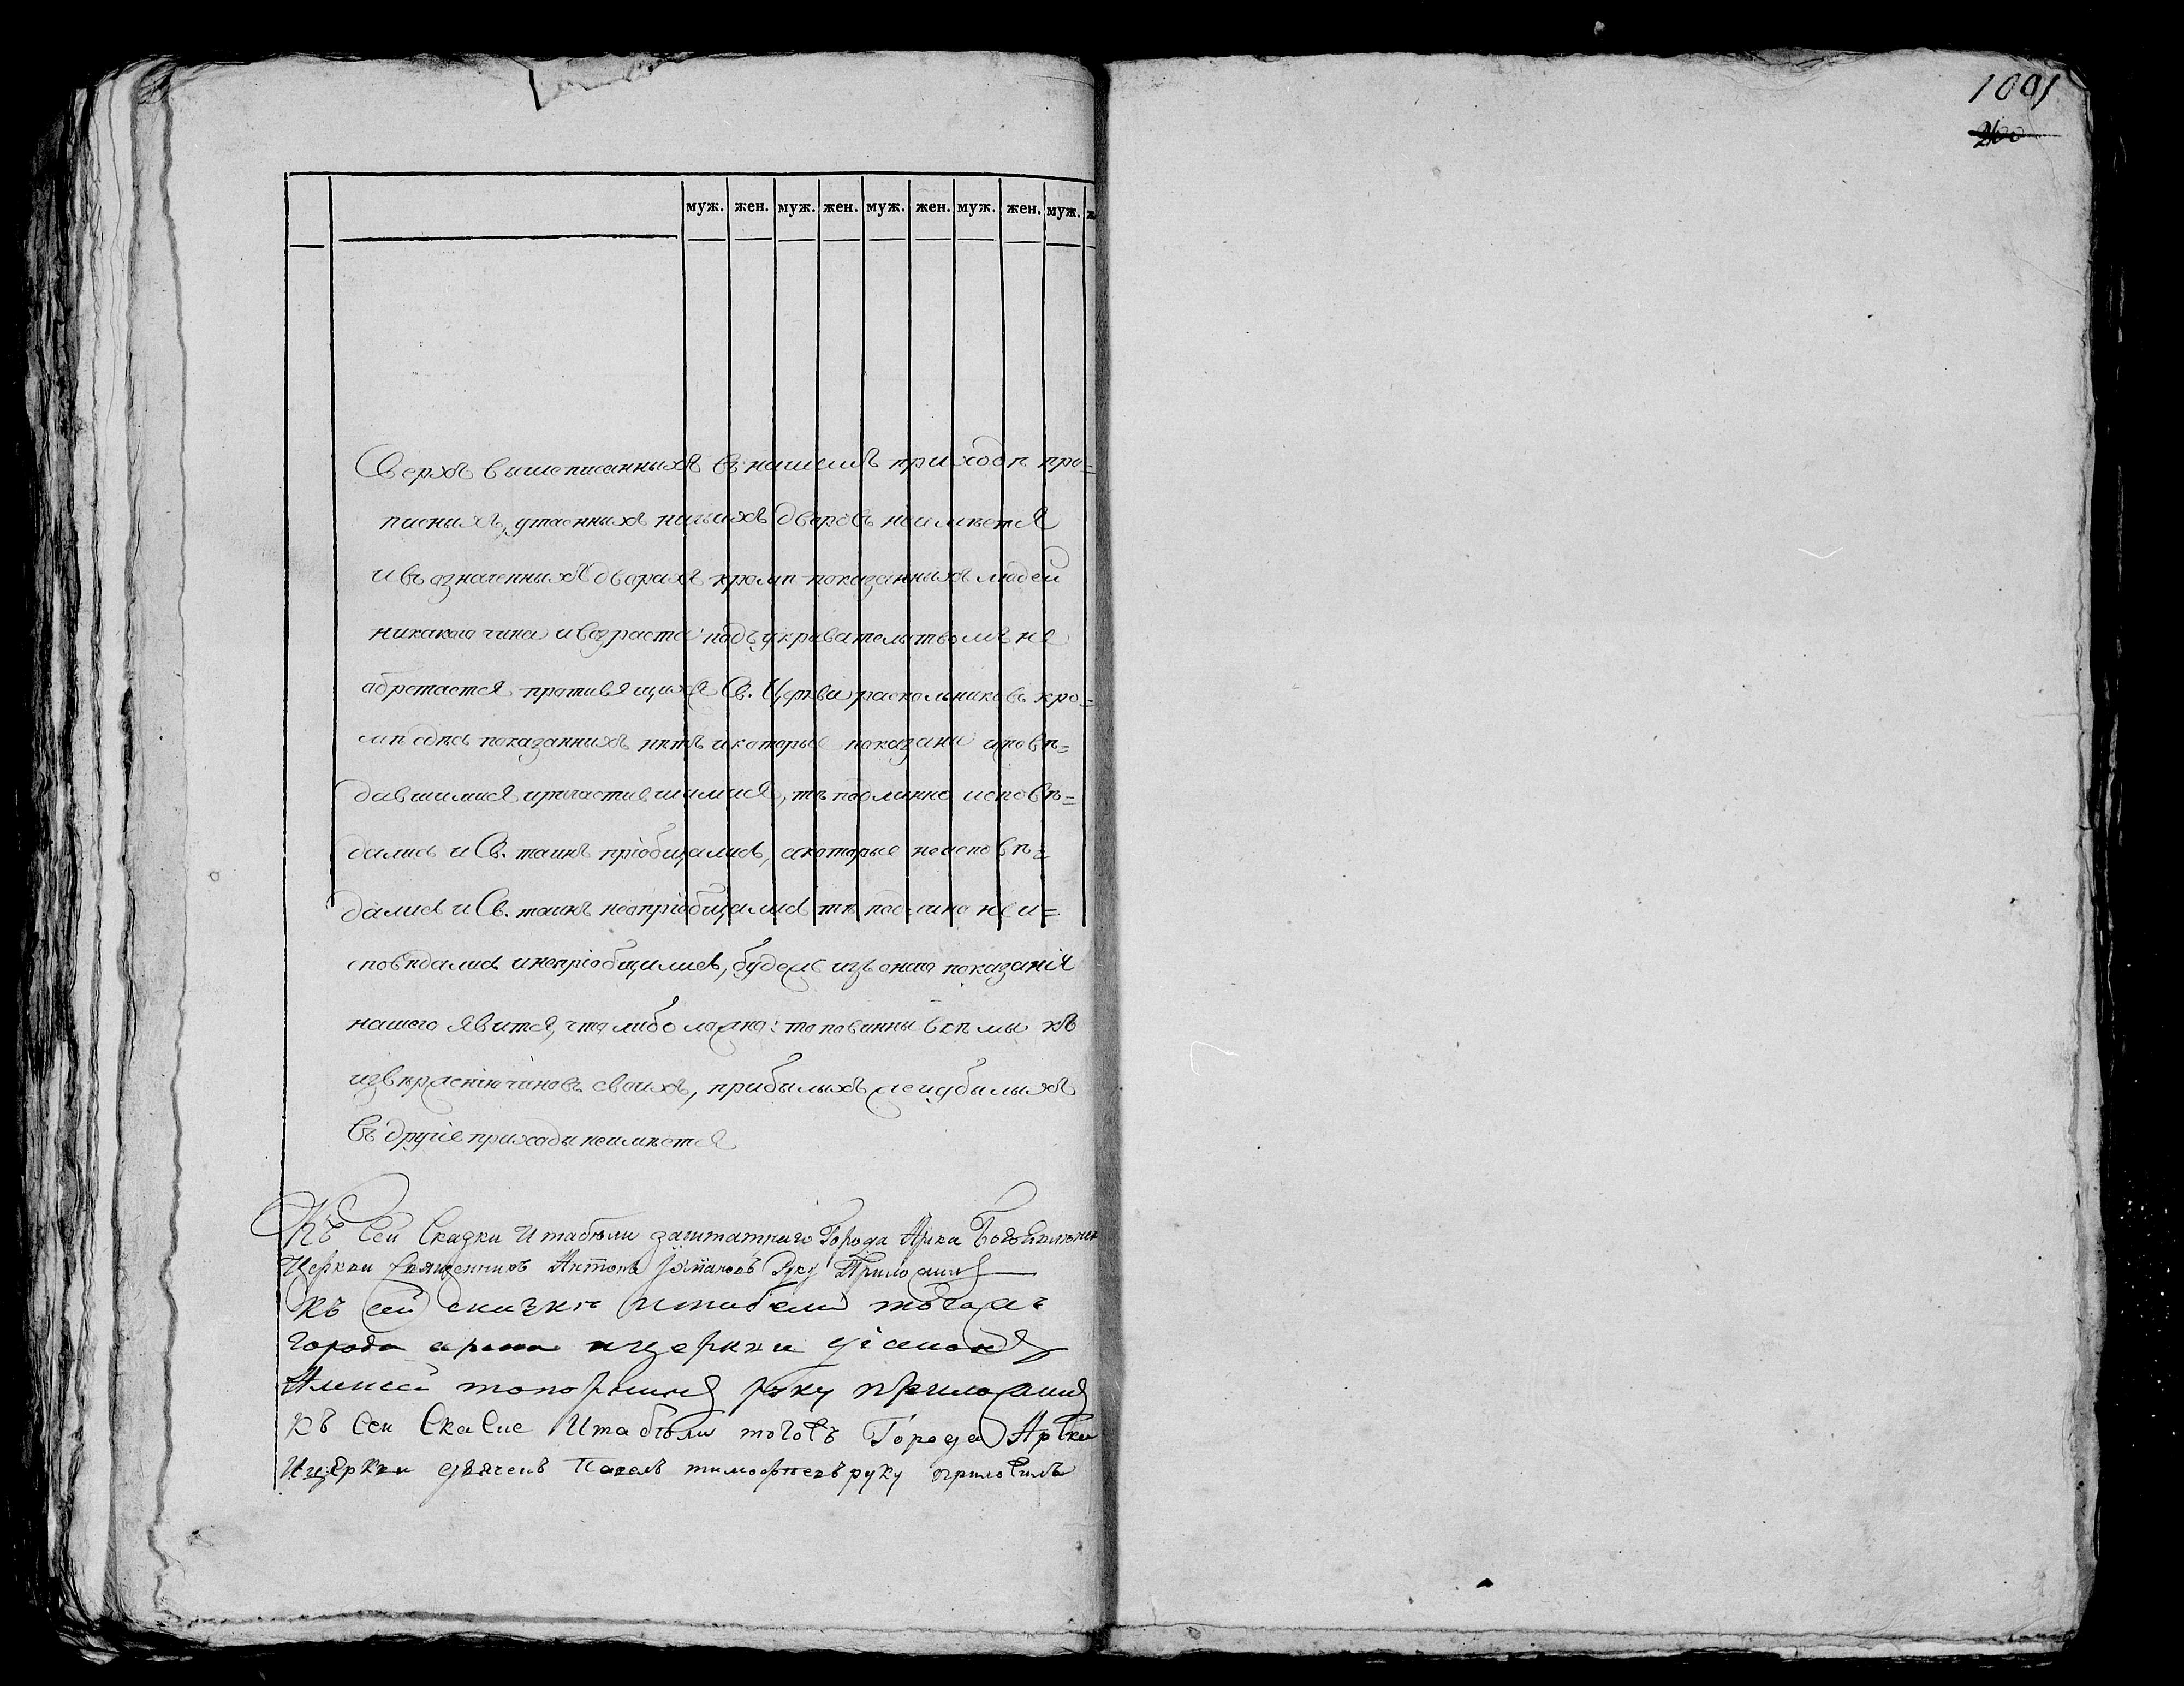 1091
200
муж. жен. муж. жен. муж. жен. муж. жен. муж. ж
Сверхъ вышеписанныхъ въ нашемъ приходѣ про=
писныхъ, утаенныхъ ничьихъ дворовъ неимѣется
и въ означенныхъ дворахъ кромѣ показанныхъ людей
никакого чина и возраста подъ укрывательствомъ не
обретается противящихся Св. Церкви раскольниковъ кро=
мѣ здѣсь показанныхъ нѣтъ и которые показаны исповѣ=
давшимися и причастившимися, тѣ подлинно исповѣ=
дались и Св. таинъ пріобщались, а которые неисповѣ=
дались и Св. таинъ непріобщались тѣ подлинно не и=
сповѣдались и непріобщились, будежъ изъ онаго показанія
нашего явится, что либо ложно: то повинны всѣ мы къ
изверженію чиновъ своихъ, прибылыхъ же и убылыхъ
въ другіе приходы неимѣется
Къ Сей Сказки И табели заштатнаго Города Арска Богоявленск
Церкви Священникъ Антонъ Руку Приложилъ
Къ сей сказкѣ и табели тогожъ
города арска и церкви діаконъ
Алексей топорнинъ руку приложилъ
Къ Сей Сказке И табѣли тогожъ Города Арска
И церкви дьячекъ Павелъ тимофѣевъ руку приложилъ